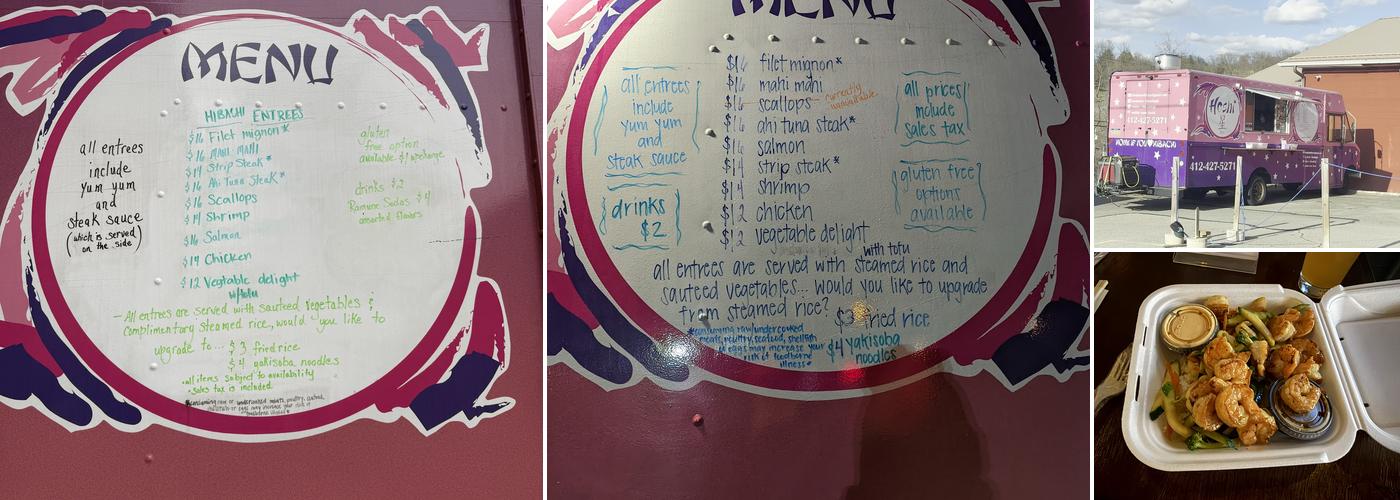 MENU
HIBACHI ENTREES
$16 Filet mignon*
$16 MAHI MAHI
$14 Strip Steak*
$16 Ahi Tuna Steak*
$16 Scallops
$14 Shrimp
$16 Salmon
$14 Chicken
$12 Vegtable delight
w/tofu
all entrees
include
yum yum
and
steak sauce
(which is served
on the side)
gluten
free option
available $1 upcharge
drinks $2
Ramune Sodas $4
assorted flavors
- All entrees are served with sauteed vegetables &
Complimentary Steamed rice, would you like to
upgrade to... $3 fried rice
$4 yakisoba noodles
•all items subject to availability
•sales tax is included
MENU
all entrees
include
yum yum
and
steak sauce
drinks
$2
$16 filet mignon*
$16 mahi mahi
$16 scallops currently
unavailable
$16 ahi tuna steak*
$16 salmon
$14 strip steak*
$14 shrimp
$12 chicken
$12 vegetable delight
with tofu
all prices
include
sales tax
gluten free
options
available
all entrees are served with steamed rice and
sauteed vegetables... would you like to upgrade
from steamed rice? $3 fried rice
$4 yakisoba
noodles
*consuming raw/undercooked
meats, poultry, seafood, shellfish
or eggs may increase your
risk of foodborne
illness*
412-427-5271
HOME IS YOU HIBACHI
412-427-5271